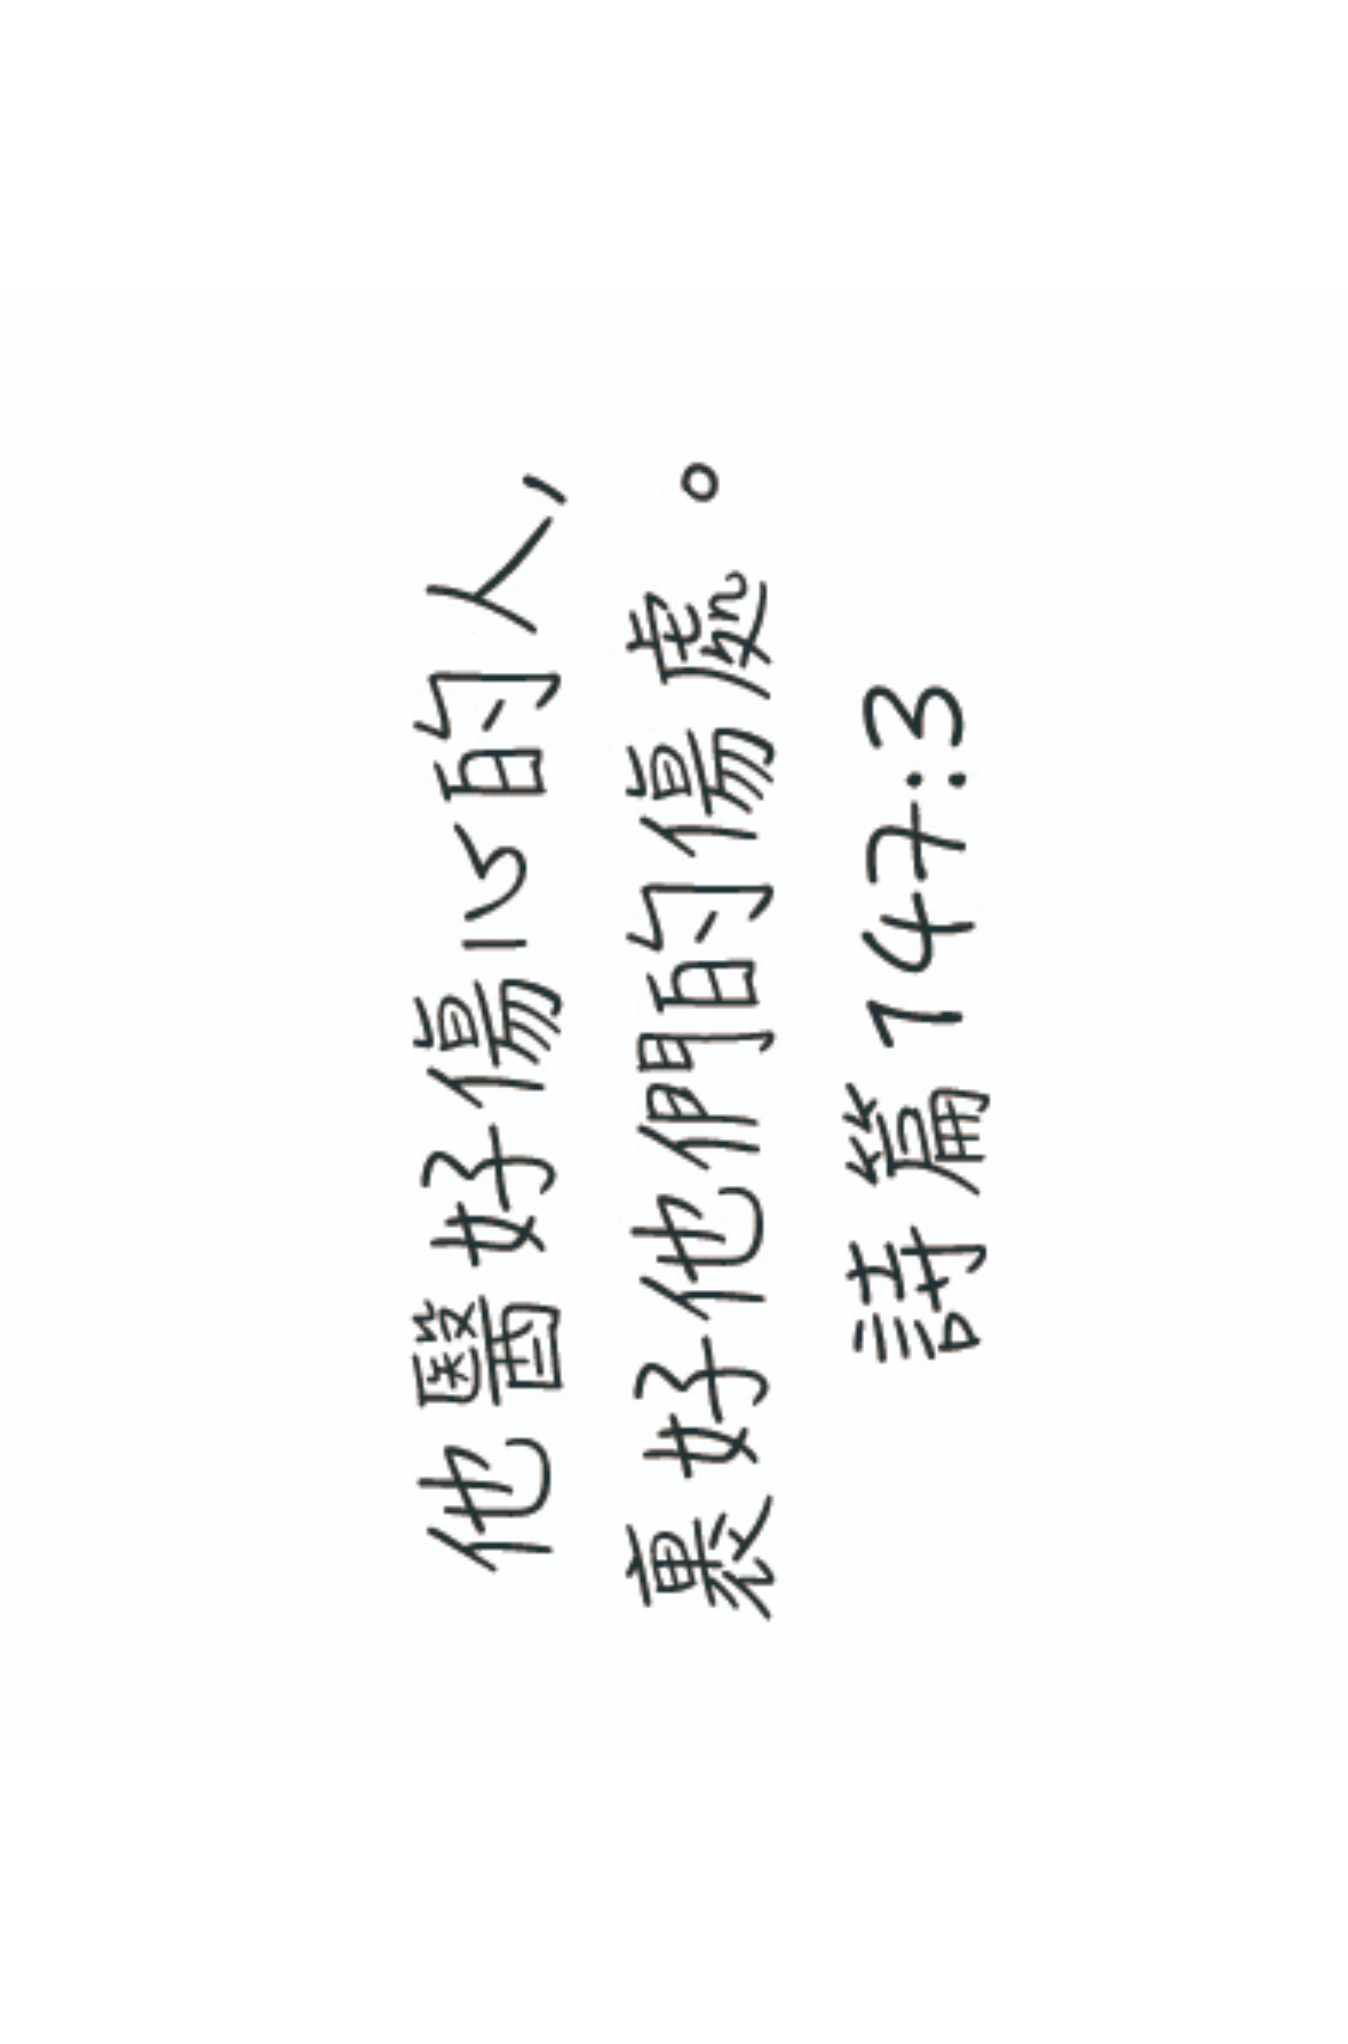 他醫好傷心的人，
裹好他們的傷處。
詩篇147:3